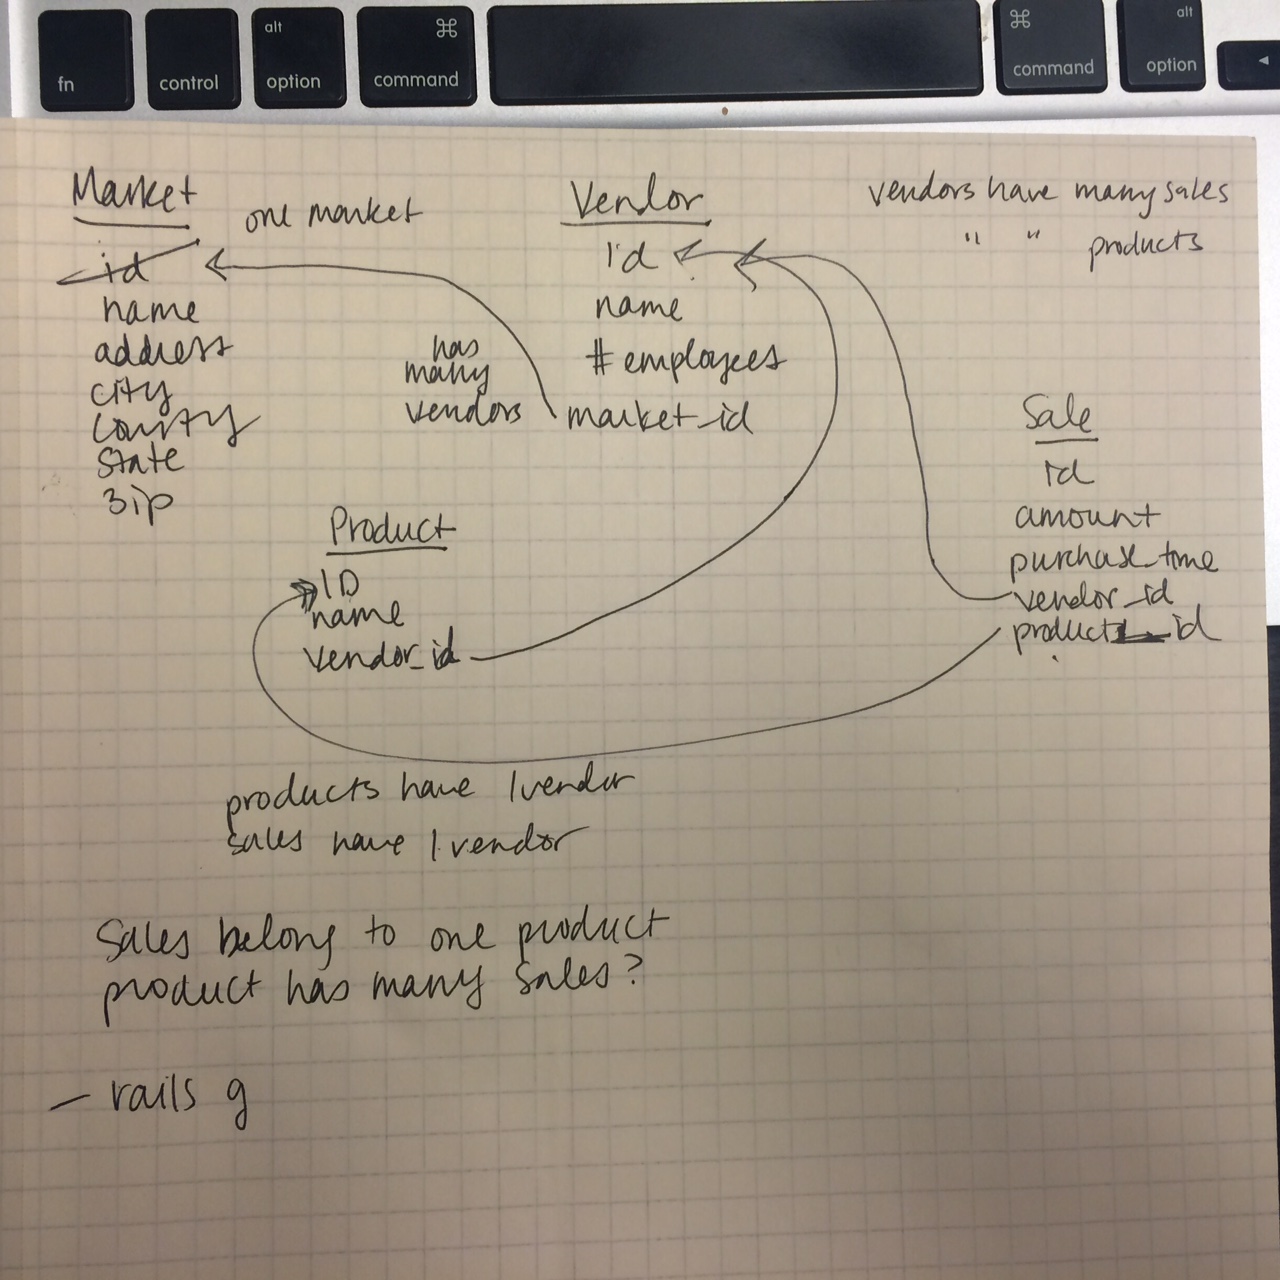 fn
control
alt
option
⌘
command
⌘
command
alt
option
◄
Market
one market
id
name
address
city
county
state
zip
has
many
vendors
Vendor
id
name
# employees
market_id
vendors have many sales
" " products
Sale
id
amount
purchase_time
vendor_id
product_id
Product
ID
name
vendor_id
products have 1 vendor
sales have 1 vendor
Sales belong to one product
product has many sales?
– rails g